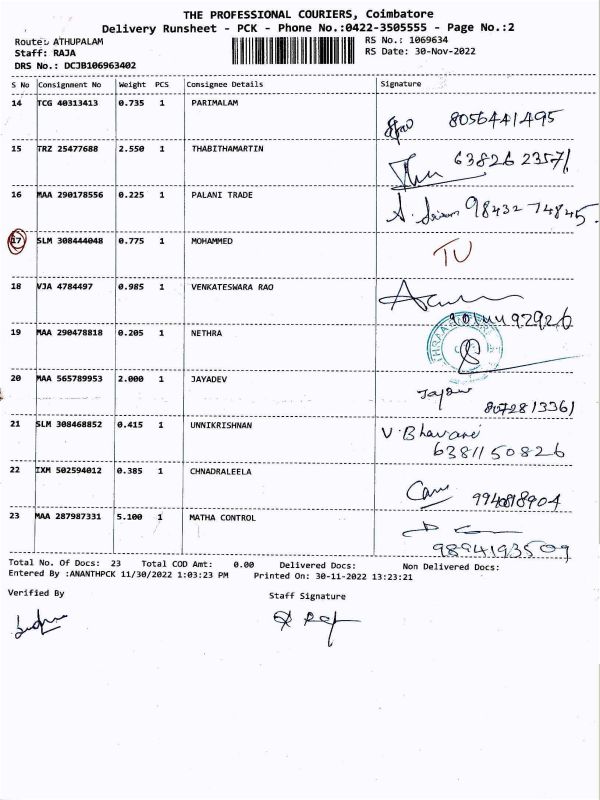 THE PROFESSIONAL COURIERS, Coimbatore
Delivery Runsheet - PCK - Phone No.:0422-3505555 - Page No.:2
Route: ATHUPALAM
RS No.: 1069634
Staff: RAJA
RS Date: 30-Nov-2022
DRS No.: DCJB106963402
S No Consignment No Weight PCS Consignee Details Signature
14 TCG 40313413 0.735 1 PARIMALAM
8056441495
15 TRZ 25477688 2.550 1 THABITHAMARTIN
63826 23571
16 MAA 290178556 0.225 1 PALANI TRADE
98432 74845
17 SLM 308444048 0.775 1 MOHAMMED
18 VJA 4784497 0.985 1 VENKATESWARA RAO
19 MAA 290478818 0.205 1 NETHRA
20 MAA 565789953 2.000 1 JAYADEV
8072813361
21 SLM 308468852 0.415 1 UNNIKRISHNAN V. Bhavani
6381150826
22 IXM 502594012 0.385 1 CHNADRALEELA
9940818904
23 MAA 287987331 5.100 1 MATHA CONTROL
9894193509
Total No. Of Docs: 23 Total COD Amt: 0.00 Delivered Docs: Non Delivered Docs:
Entered By :ANANTHPCK 11/30/2022 1:03:23 PM Printed On: 30-11-2022 13:23:21
Verified By Staff Signature